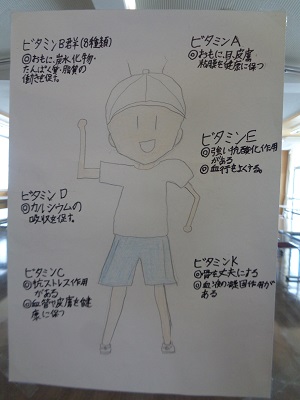 ビタミンB群(8種類)
◎おもに、炭水化物・
たんぱく質・脂質の
働きを促す。
ビタミンA
◎おもに、目、皮膚・
粘膜を健康に保つ
ビタミンE
◎強い抗酸化作用
がある
◎血行をよくする。
ビタミンD
◎カルシウムの
吸収を促す。
ビタミンC
◎抗ストレス作用
がある
◎血管や皮膚を健
康に保つ
ビタミンK
◎骨を丈夫にする
◎血液の凝固作用が
ある